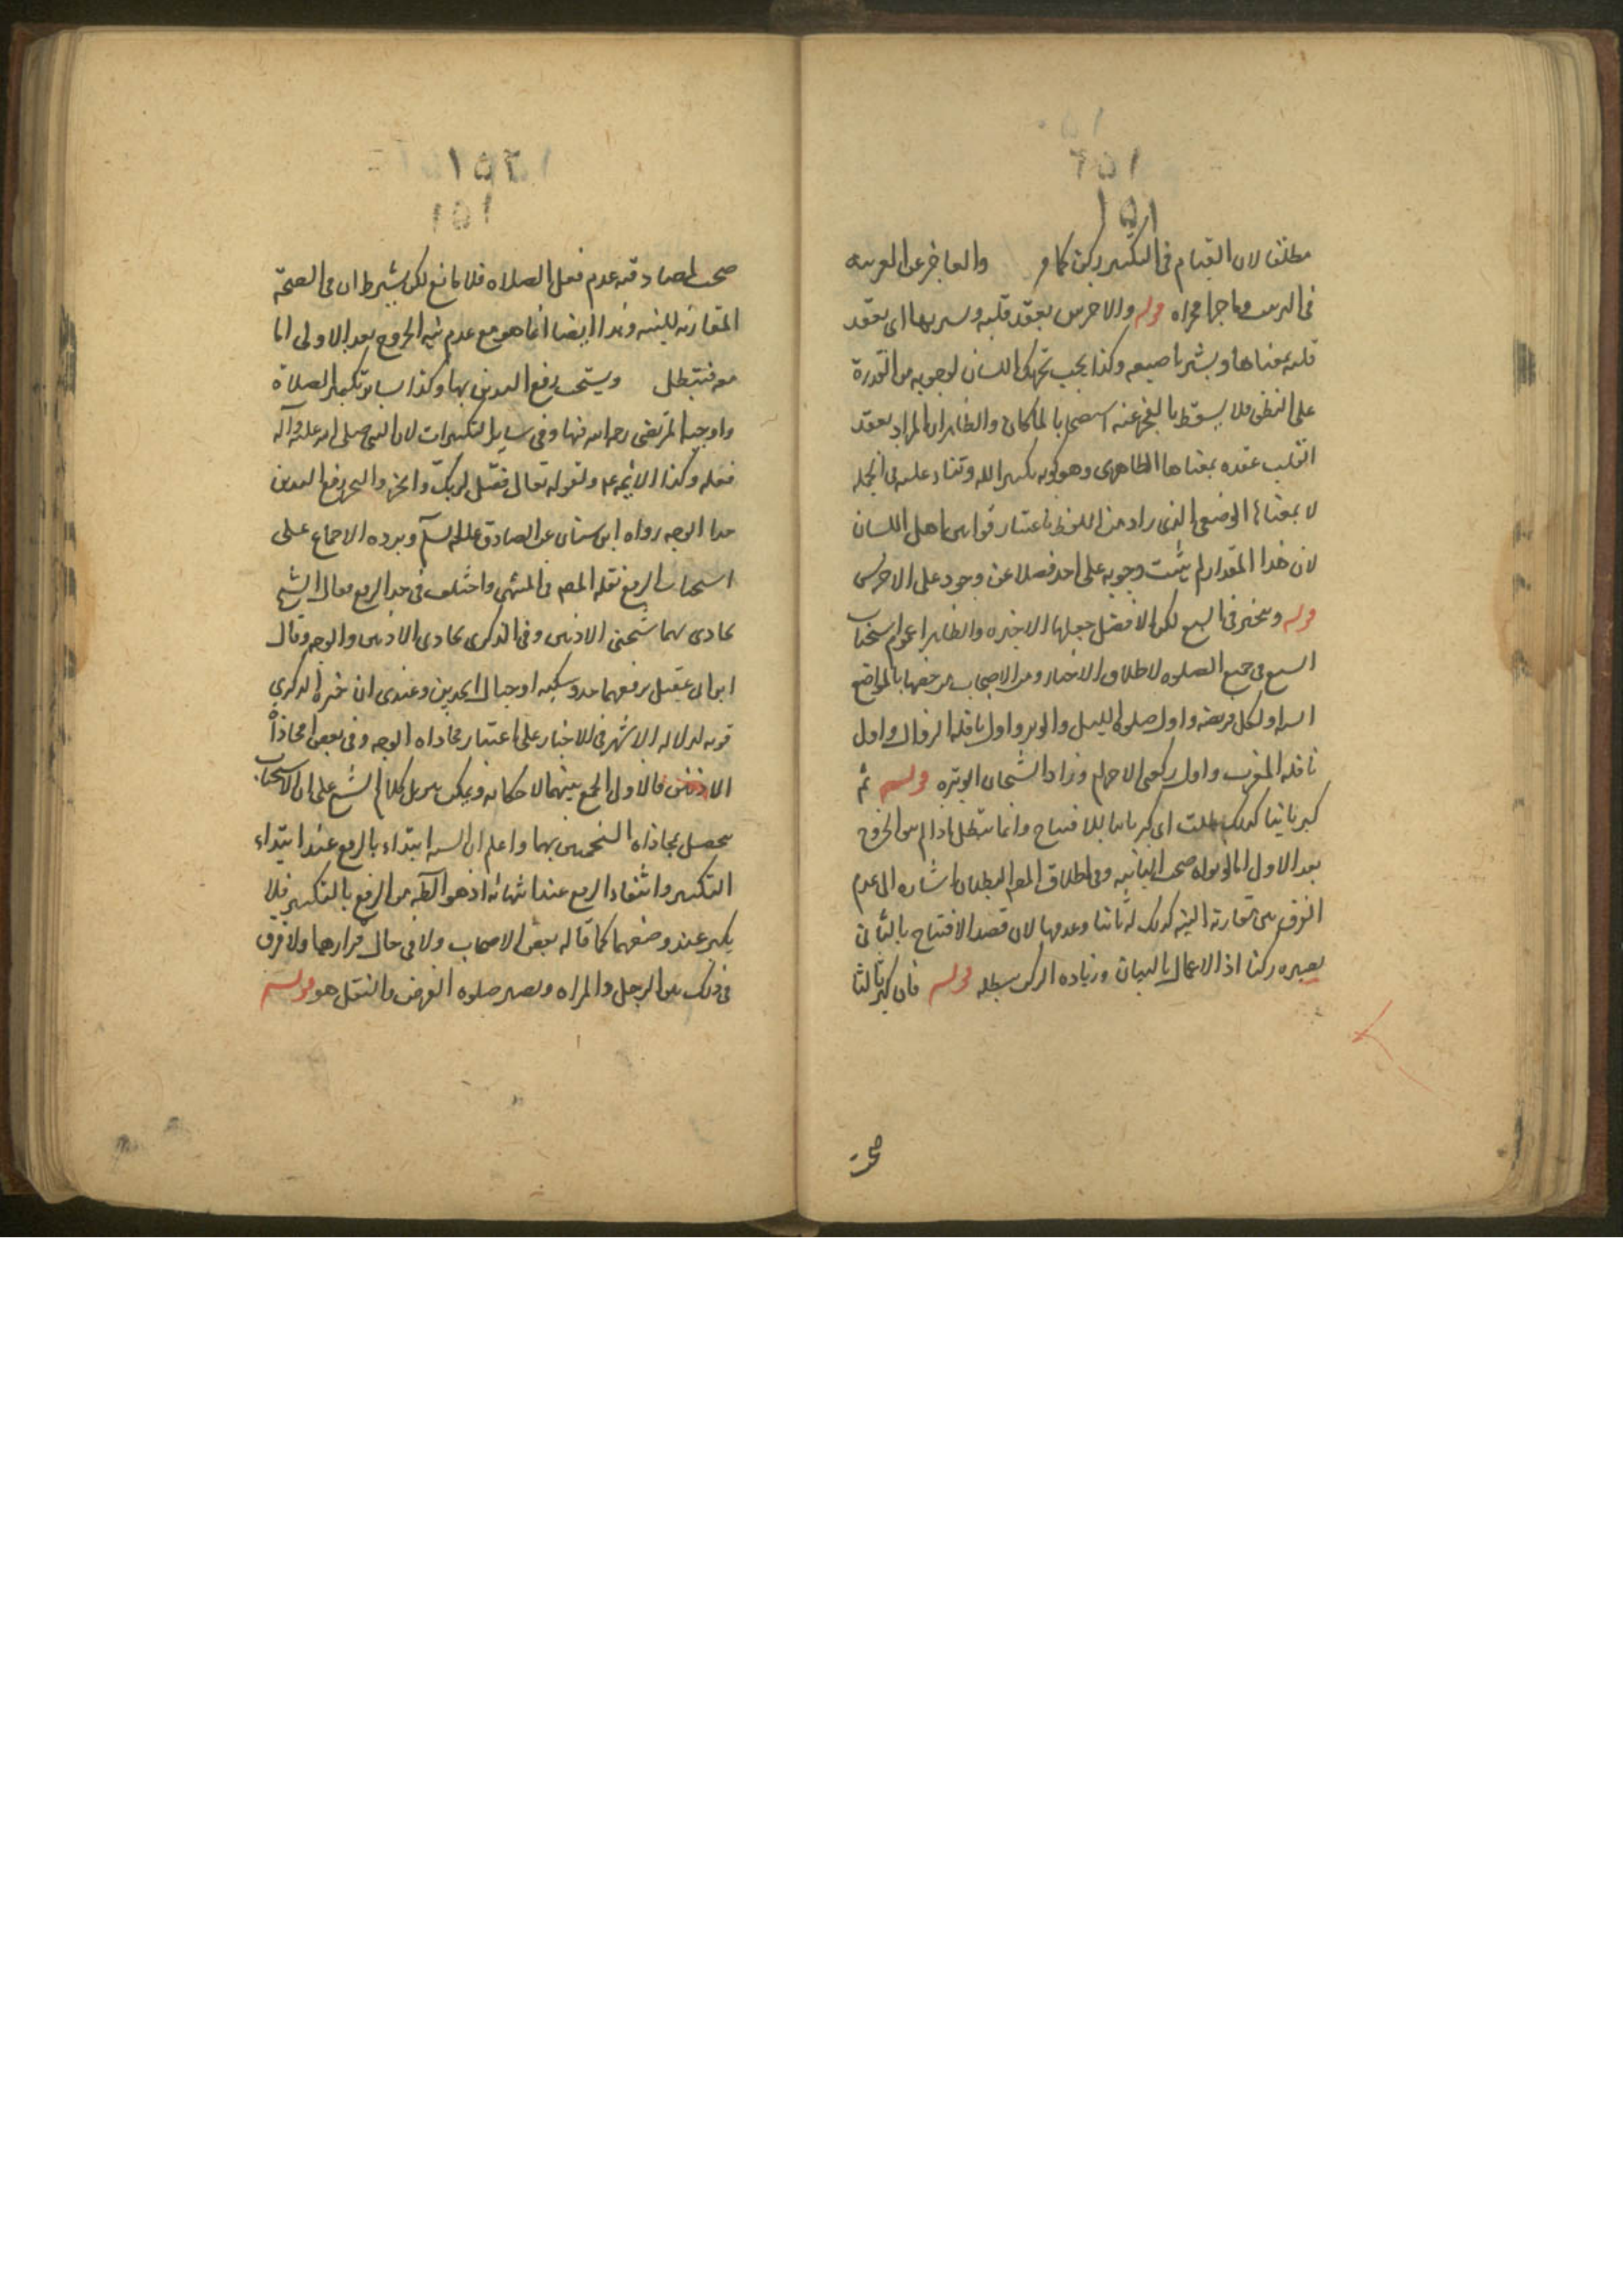 ١٥١
مطلقا لان القيام فى التكبير ركن كما مر والعاجز عن العربيه
قوله والاخرس يعقد قلبه ويشير بها اى يعقد
قلبه بمعناها ويشير باصبعه وكذا يجب تحريك اللسان لوجوبه مع القدرة
على النطق فلا يسقط بالعجز عنه استصحابا لما كان والظاهر ان المراد بعقد
القلب عقده بمعناها الظاهرى وهو كونه تكبير الله وثناء عليه فى الجمله
لا بمعناها الوضعى الذى يراد من اللفظ باعتبار قوانين اهل اللسان
لان هذا المقدار لم يثبت وجوبه على احد فضلا عن وجوده على الاخرس
قوله ويتخير فى السبع لكن الافضل جعلها الاخيره والظاهر عموم استحباب
السبع فى جميع الصلوه لاطلاق الاخبار ومن الاصحاب من خصها بالمواضع
السته اول كل فريضه واول صلوه الليل والوتر واول نافله الزوال واول
نافله المغرب واول ركعتى الاحرام وزاد الشيخان الوتيره قوله ثم
كبر ثانيا كذلك بطلت اى كبر ثانيا للافتتاح وانما تبطل اذا لم ينو الخروج
بعد الاول اما لو نواه صحت الثانيه وفى اطلاق المص البطلان اشاره الى عدم
الفرق بين مقارنة النيه كذلك له ثانيا وعدمها لان قصد الافتتاح بالثانى
يصيره ركنا اذ الاعمال بالنيات وزياده الركن مبطله قوله فان كبر ثالثا
صحت
١٥٢
١٥١
صحت لمصادفته عدم فعل الصلاه فلا مانع لكن يشترط ان فى الصحة
المقارنه للنيه وهذا ايضا انما هو مع عدم نيه الخروج بعد الاولى اما
معه فتبطل ويستحب رفع اليدين بها وكذا ساير تكبير الصلاة
واوجبه المرتضى رحمه الله فيها وفى ساير التكبيرات لان النبى صلى الله عليه وآله
فعله وكذا الائمه ع ولقوله تعالى فصل لربك وانحر والنحر رفع اليدين
حذا الوجه رواه ابن سنان عن الصادق عليه السلم ويرده الاجماع على
استحباب الرفع نقله المص فى المنتهى واختلف فى حد الرفع فقال الشيخ
يحاذى بهما شحمتى الاذنين وفى الذكرى يحاذى الاذنين والوجه وقال
ابن ابى عقيل يرفعهما حذو منكبيه او حيال الخدين وعندى ان خيرة الذكرى
قويه لدلاله الاشهر فى الاخبار على اعتبار محاذاه الوجه وفى بعض محاذاة
الاذنين فالاولى الجمع بينهما لامكانه ويمكن تنزيل كلام الشيخ على ان الاستحباب
يحصل بمحاذاه الشحمتين بهما واعلم ان السنه ابتداء بالرفع عند ابتداء
التكبير وانتهاء الرفع عند انتهائه اذ هو المظنه من الرفع بالتكبير فلا
يكبر عند وضعهما كما قاله بعض الاصحاب ولا فى حال قرارهما ولا فرق
فى ذلك بين الرجل والمراه ومصير صلوه الفرض والنفل هو قوله